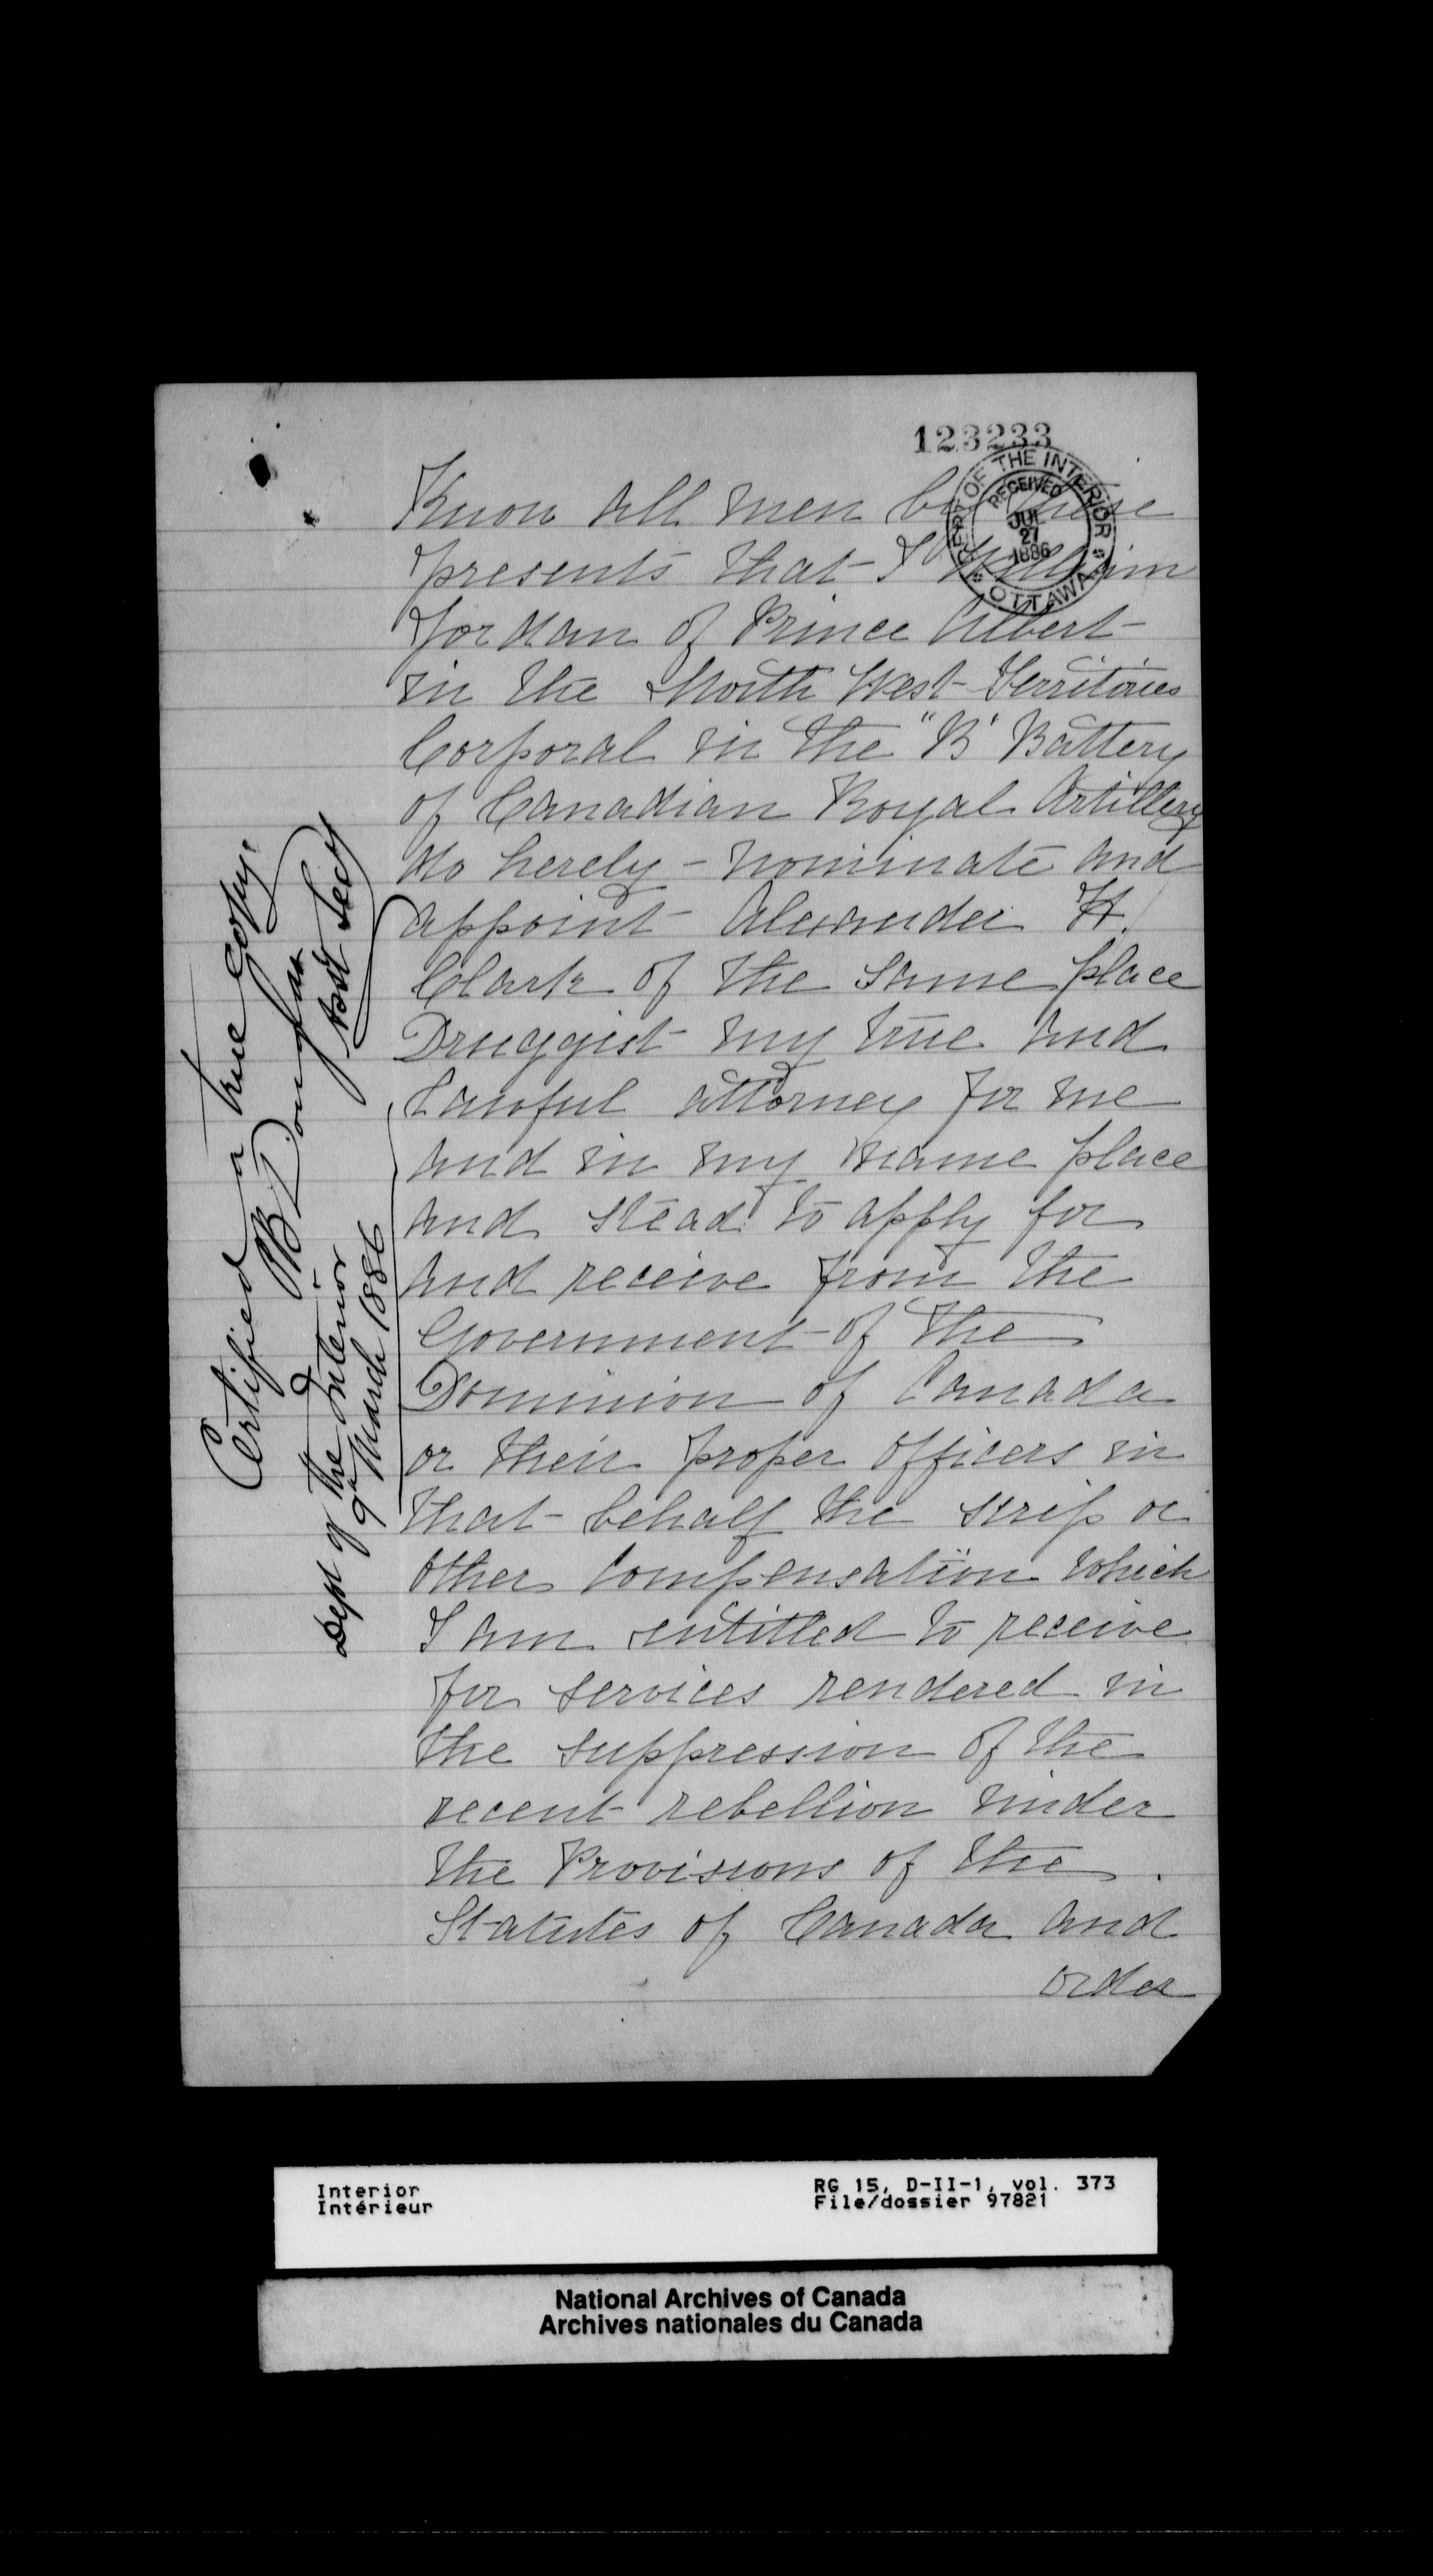 123233
DEPT. OF THE INTERIOR
RECEIVED
JUL
27
1886
OTTAWA
Know all men by these
presents that I William
Jordan of Prince Albert
in the North West Territories
Corporal in the "B" Battery
of Canadian Royal Artillery
do hereby - nominate and
appoint Alexander H.
Clark of the same place
Druggist my true and
Lawful attorney for me
and in my name place
and stead to apply for
and receive from the
Government of the
Dominion of Canada
or their proper officers in
that behalf the scrip or
other compensation which
I am entitled to receive
for services rendered in
the suppression of the
recent rebellion under
the Provisions of the
Statutes of Canada and
order
Certified a true copy.
Douglas
Asst Secy
Dept of the Interior
9th March 1886
Interior
Intérieur
RG 15, D-II-1, vol. 373
File/dossier 97821
National Archives of Canada
Archives nationales du Canada